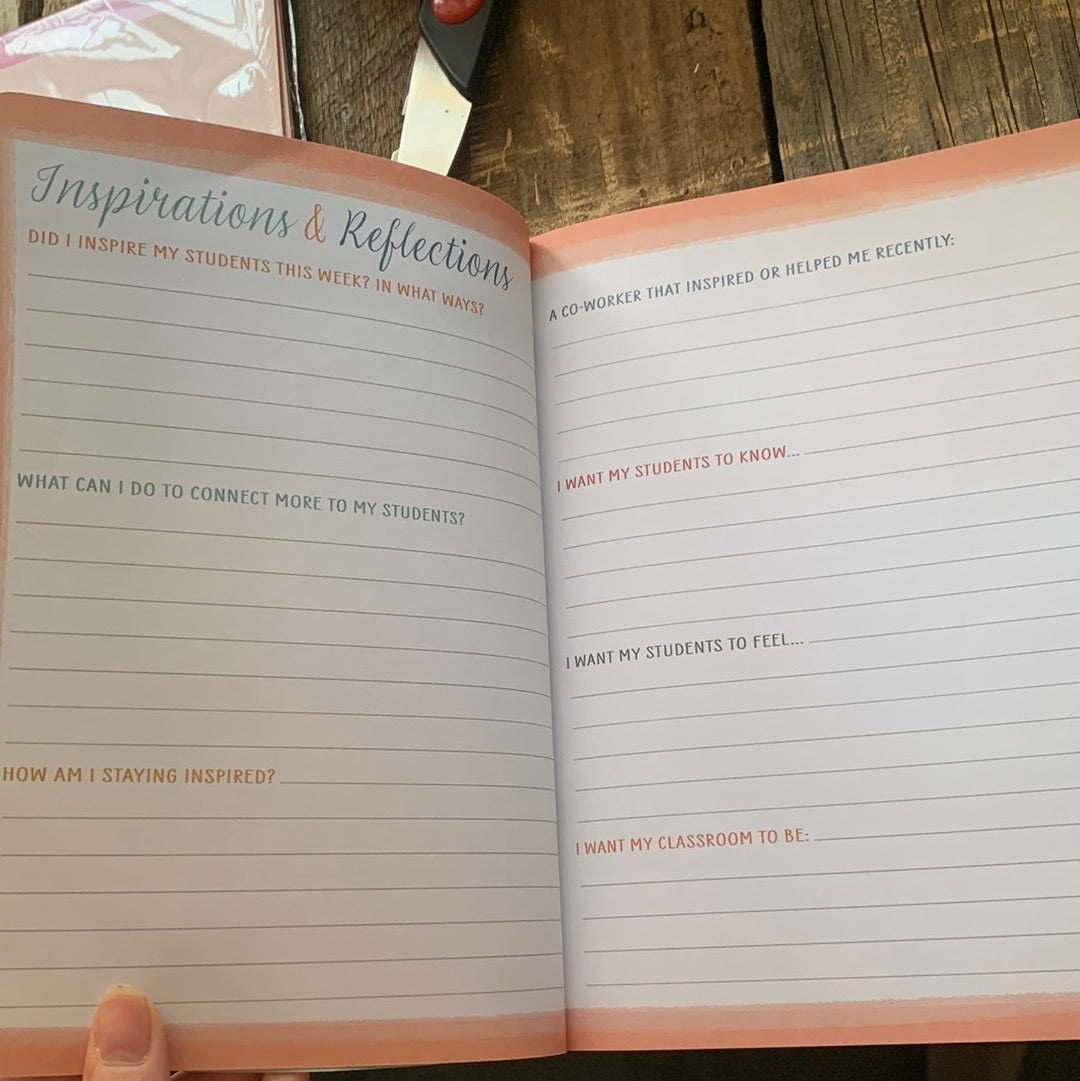 Inspirations & Reflections
DID I INSPIRE MY STUDENTS THIS WEEK? IN WHAT WAYS?
WHAT CAN I DO TO CONNECT MORE TO MY STUDENTS?
HOW AM I STAYING INSPIRED?
A CO-WORKER THAT INSPIRED OR HELPED ME RECENTLY:
I WANT MY STUDENTS TO KNOW...
I WANT MY STUDENTS TO FEEL...
I WANT MY CLASSROOM TO BE: